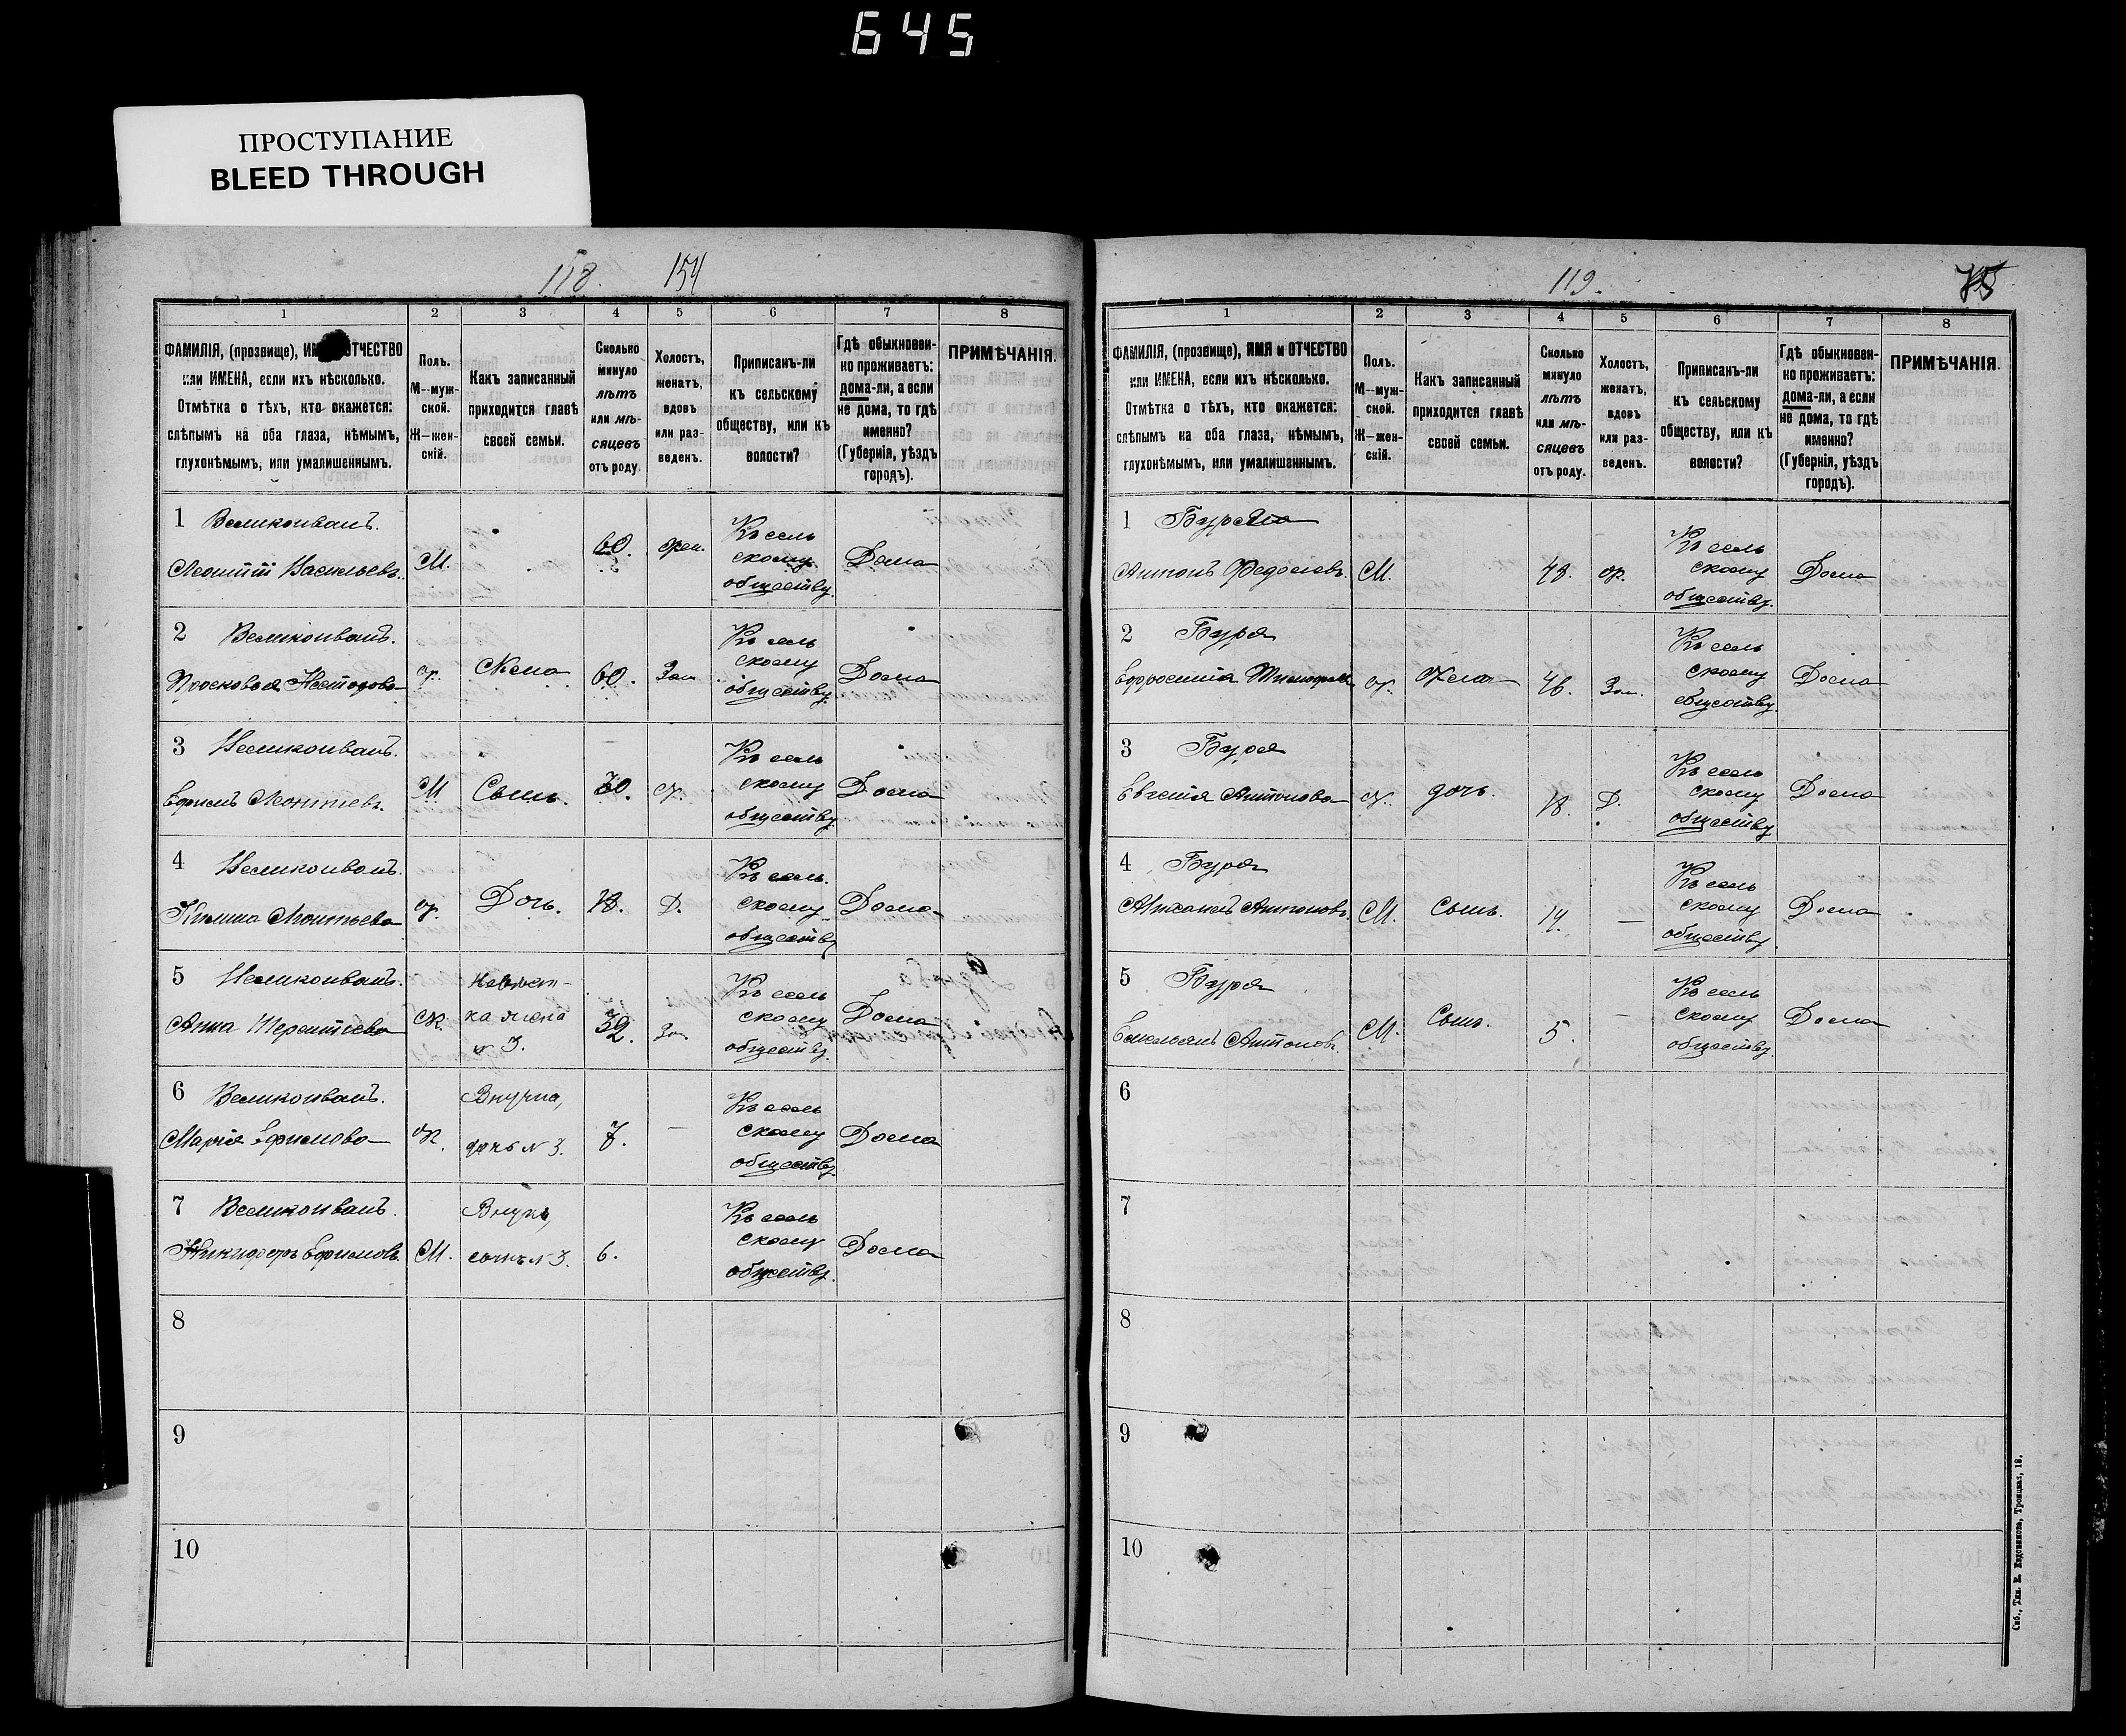 645
ПРОСТУПАНИЕ
BLEED THROUGH
118. 154
1 2 3 4 5 6 7 8
ФАМИЛІЯ, (прозвище), ИМ ОТЧЕСТВО
или ИМЕНА, если ихъ нѣсколько.
Отмѣтка о тѣхъ, кто окажется:
слѣпымъ на оба глаза, нѣмымъ,
глухонѣмымъ, или умалишеннымъ.
Полъ.
М—муж-
ской.
Ж—жен-
скій.
Какъ записанный
приходится главѣ
своей семьи.
Сколько
минуло
лѣтъ
или мѣ-
сяцевъ
отъ роду.
Холостъ,
женатъ,
вдовъ
или раз-
веденъ.
Приписанъ-ли
къ сельскому
обществу, или къ
волости?
Гдѣ обыкновен-
но проживаетъ:
дома-ли, а если
не дома, то гдѣ
именно?
(Губернія, уѣздъ
городъ).
ПРИМѢЧАНІЯ.
1 Великоиванъ.
Леонтій Васильевъ. М. 60. жен. Къ сель
скому
обществу. Дома
2 Великоиванъ.
Просковья ж. Жена 60. Зам. Къ сель
скому
обществу. Дома
3 Великоиванъ.
Ефимъ Леонтіевъ. М Сынъ. 30. ж. Къ сель
скому
обществу Дома
4 Великоиванъ.
Леонтьева ж. Дочь. 18. Д. Къ сель.
скому
обществу Дома
5 Великоиванъ.
Анна Терентіева Ж. Невѣст-
ка жена
№ 3. 32. Зам. Къ сель
скому
обществу. Дома
6 Великоиванъ.
Марія Ефимова ж. Внучка,
дочь № 3. 7. — Къ сель
скому
обществу Дома
7 Великоиванъ.
Никифоръ Ефимовъ. М. Внукъ,
сынъ № 3. 6. Къ сель
скому
обществу. Дома
8
9
10
119.
1 2 3 4 5 6 7 8
ФАМИЛІЯ, (прозвище), ИМЯ и ОТЧЕСТВО
или ИМЕНА, если ихъ нѣсколько.
Отмѣтка о тѣхъ, кто окажется:
слѣпымъ на оба глаза, нѣмымъ,
глухонѣмымъ, или умалишеннымъ.
Полъ.
М—муж-
ской.
Ж—жен-
скій.
Какъ записанный
приходится главѣ
своей семьи.
Сколько
минуло
лѣтъ
или мѣ-
сяцевъ
отъ роду.
Холостъ,
женатъ,
вдовъ
или раз-
веденъ.
Приписанъ-ли
къ сельскому
обществу, или къ
волости?
Гдѣ обыкновен-
но проживаетъ:
дома-ли, а если
не дома, то гдѣ
именно?
(Губернія, уѣздъ
городъ).
ПРИМѢЧАНІЯ.
1
Антонъ Федоровъ. М. 48. ж. Къ сель
скому
обществу. Дома
2 Буря
Ефросинія ж. Жена 46. Зам. Къ сель
скому
обществу. Дома
3 Буря
Евгенія Антонова ж. дочь. 18. Д. Къ сель
скому
обществу Дома
4 Буря
Михаилъ Антоновъ. М. Сынъ. 14. — Къ сель
скому
обществу. Дома
5 Буря
Емельянъ Антоновъ. М. Сынъ. 5. — Къ сель
скому
обществу. Дома
6
7
8
9
10
Спб., Тип. Е. Евдокимова, Троицкая, 18.